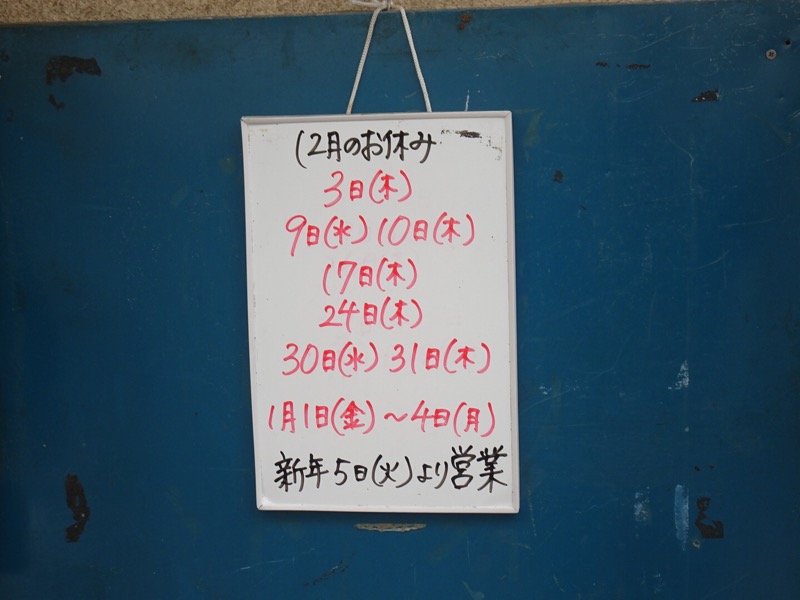 12月のお休み
3日(木)
9日(水) 10日(木)
17日(木)
24日(木)
30日(水) 31日(木)
1月1日(金)～4日(月)
新年5日(火)より営業